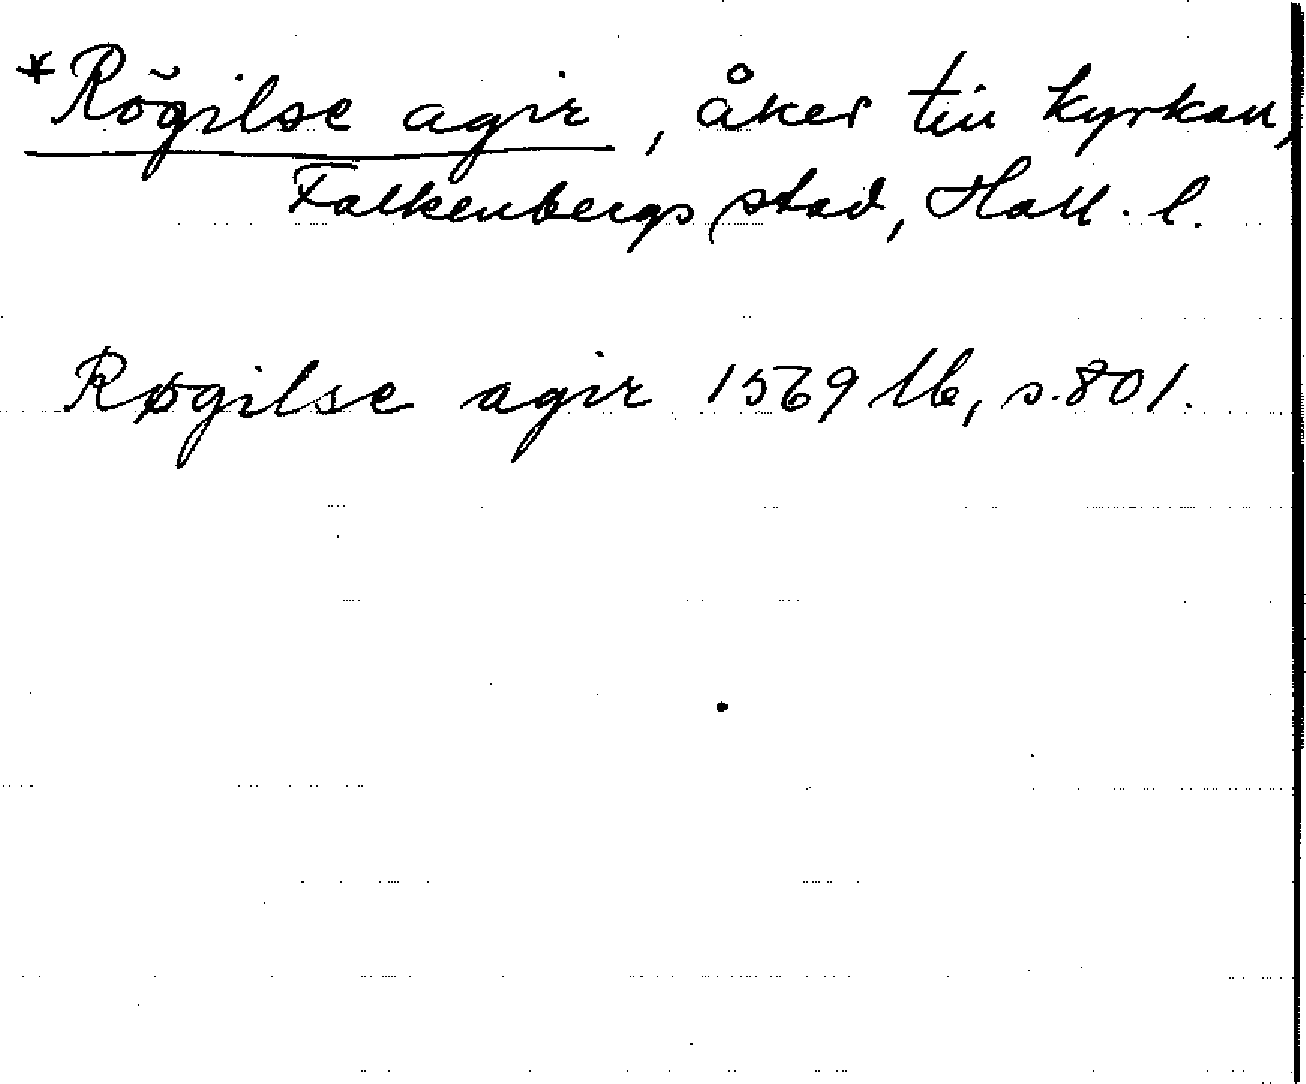 *Rögilse agir, åker till kyrkan,
Falkenbergs stad, Hall. l.
Røgilse agir 1569 lb, s. 801.